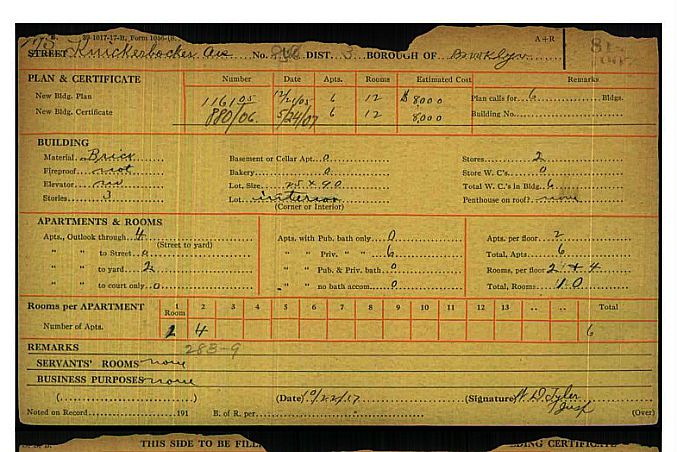 17-B, Form 1050-(S.
A+R
STREET Knickerbocker Ave No. DIST. 3 BOROUGH OF Brooklyn
PLAN & CERTIFICATE Number Date Apts. Rooms Estimated Cost Remarks
New Bldg. Plan 1161/05 12/21/05 6 12 $8000 Plan calls for 6 Bldgs.
New Bldg. Certificate 880/06. 5/24/07 6 12 8,000 Building No.
BUILDING
Material Brick Basement or Cellar Apt. 0 Stores 2
Fireproof not Bakery 0 Store W. C's. 0
Elevator no Lot, Size 25 x 90 Total W. C.'s in Bldg. 6
Stories 3 Lot interior Penthouse on roof? none
(Corner or Interior)
APARTMENTS & ROOMS
Apts., Outlook through 4 Apts. with Pub. bath only 0 Apts. per floor 2
(Street to yard)
" " to Street 0 " " Priv. " " 6 Total, Apts. 6
" " to yard 2 " " Pub. & Priv. bath 0 Rooms, per floor 2 + 4
" " to court only 0 " " no bath accom. 0 Total, Rooms 10
Rooms per APARTMENT 1 Room 2 3 4 5 6 7 8 9 10 11 12 13 .. .. Total
Number of Apts. 2 4 6
REMARKS 283-9
SERVANTS' ROOMS none
BUSINESS PURPOSES none
( ) (Date) 10/22/17 (Signature) W. D. Tyler
Insp
Noted on Record 191 B. of R. per (Over)
THIS SIDE TO BE FILL